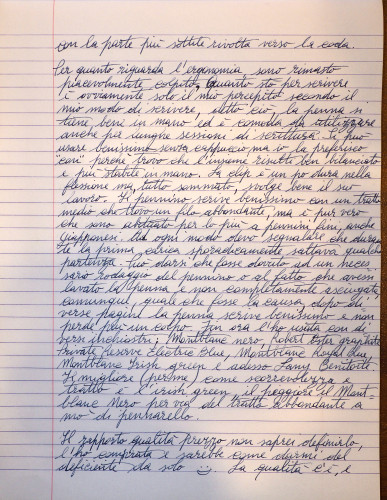 con la parte più sottile rivolta verso la coda.
Per quanto riguarda l'ergonomia sono rimasto
piacevolmente colpito, quanto sto per scrivere
è ovviamente solo il mio percepito secondo il
mio modo di scrivere. Altro ciò la penna si
tiene bene in mano ed è comoda da utilizzare
anche per lunghe sessioni di scrittura. Si può
usare benissimo senza cappuccio ma io la preferisco
così perché trovo che l'insieme risulti ben bilanciato
e più stabile in mano. La clip è un po' dura nella
flessione ma, tutto sommato, svolge bene il suo
lavoro. Il pennino scrive benissimo con un tratto
medio che trovo un filo abbondante, ma è pur vero
che sono abituato per lo più a pennini fini, anche
giapponesi. Ad ogni modo devo segnalare che duran-
te la prima carica sporadicamente saltava qualche
partenza. Non darsi che fosse dovuto ad un neces
sario rodaggio del pennino o al fatto che avessi
lavato la penna e non completamente asciugata,
comunque, quale che fosse la causa, dopo di
verse pagine la penna scrive benissimo e non
perde più un colpo. Fin ora l'ho usata con di
versi inchiostri; Montblanc nero, Robert Oster graphite
Private Reserve Electric Blue, Montblanc Royal blue,
Montblanc Irish green e adesso Lamy Benitoite.
Il migliore (per me) come scorrevolezza e
tratto è irish green il peggiore il Mont-
blanc Nero per via del tratto abbondante a
mo' di pennarello.
Il rapporto qualità prezzo non saprei definirlo,
l'ho comprata e sarebbe come dirmi del
deficiente da solo ☺. La qualità c'è, e